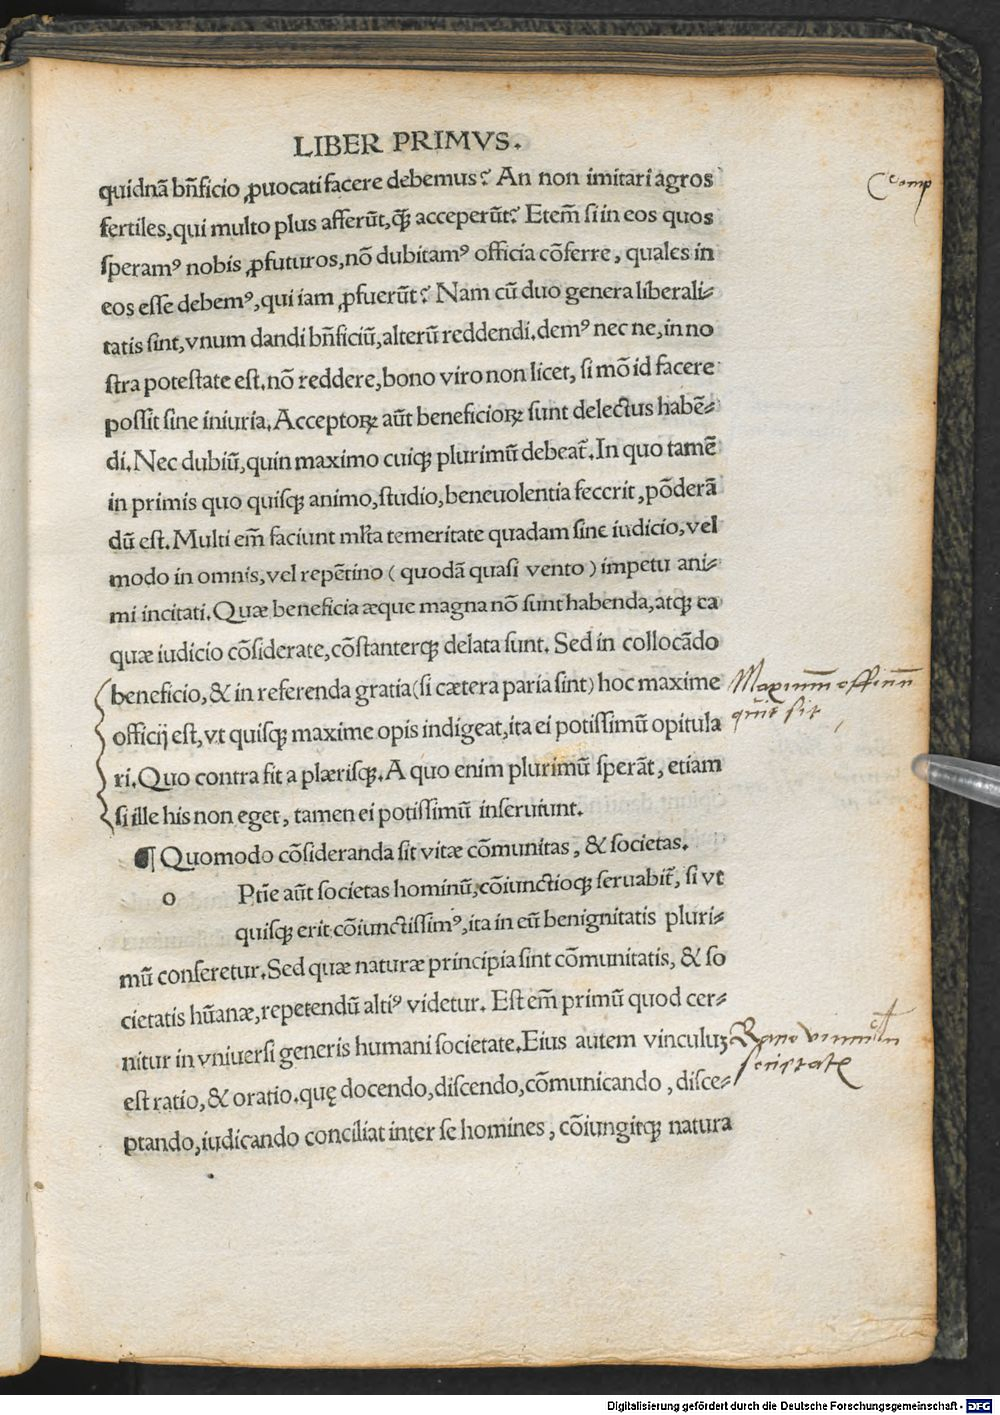 LIBER PRIMVS.
quidnã bñficio ꝓuocati facere debemus? An non imitari agros
fertiles, qui multo plus afferũt, q̃ꝫ acceperũt? Etem̃ si in eos quos
speramꝰ nobis ꝓfuturos, nõ dubitamꝰ officia cõferre, quales in
eos esse debemꝰ, qui iam ꝓfuerũt? Nam cũ duo genera liberali⸗
tatis sint, vnum dandi bñficiũ, alterũ reddendi. demꝰ nec ne, in no
stra potestate est. nõ reddere, bono viro non licet, si mõ id facere
possit sine iniuria. Acceptoꝝ aũt beneficioꝝ sunt delectus habẽ⸗
di. Nec dubiũ, quin maximo cuiqꝫ plurimũ debeat̃. In quo tamẽ
in primis quo quisqꝫ animo, studio, beneuolentia fecerit, põderã
dũ est. Multi em̃ faciunt ml̃ta temeritate quadam sine iudicio, vel
modo in omnis, vel repẽtino ( quodã quasi vento ) impetu ani⸗
mi incitati. Quæ beneficia æque magna nõ sunt habenda, atqꝫ ea
quæ iudicio cõsiderate, cõstanterqꝫ delata sunt. Sed in collocãdo
beneficio, & in referenda gratia (si cætera paria sint) hoc maxime
officij est, vt quisqꝫ maxime opis indigeat, ita ei potissimũ opitula
ri. Quo contra fit a plærisqꝫ. A quo enim plurimũ sperãt, etiam
si ille his non eget, tamen ei potissimũ inseruiunt.
¶ Quomodo cõsideranda sit vitæ cõmunitas, & societas.
o Ptĩe aũt societas hominũ, cõiunctioqꝫ seruabit̃, si vt
quisqꝫ erit cõiunctissimꝰ, ita in eũ benignitatis pluri⸗
mũ conferetur. Sed quæ naturæ principia sint cõmunitatis, & so
cietatis hũanæ, repetendũ altiꝰ videtur. Est em̃ primũ quod cer⸗
nitur in vniuersi generis humani societate. Eius autem vinculuꝫ
est ratio, & oratio. quę docendo, discendo, cõmunicando, disce⸗
ptando, iudicando conciliat inter se homines, cõiungitqꝫ natura
Maximũ officiũ
quit sit
Digitalisierung gefördert durch die Deutsche Forschungsgemeinschaft - DFG